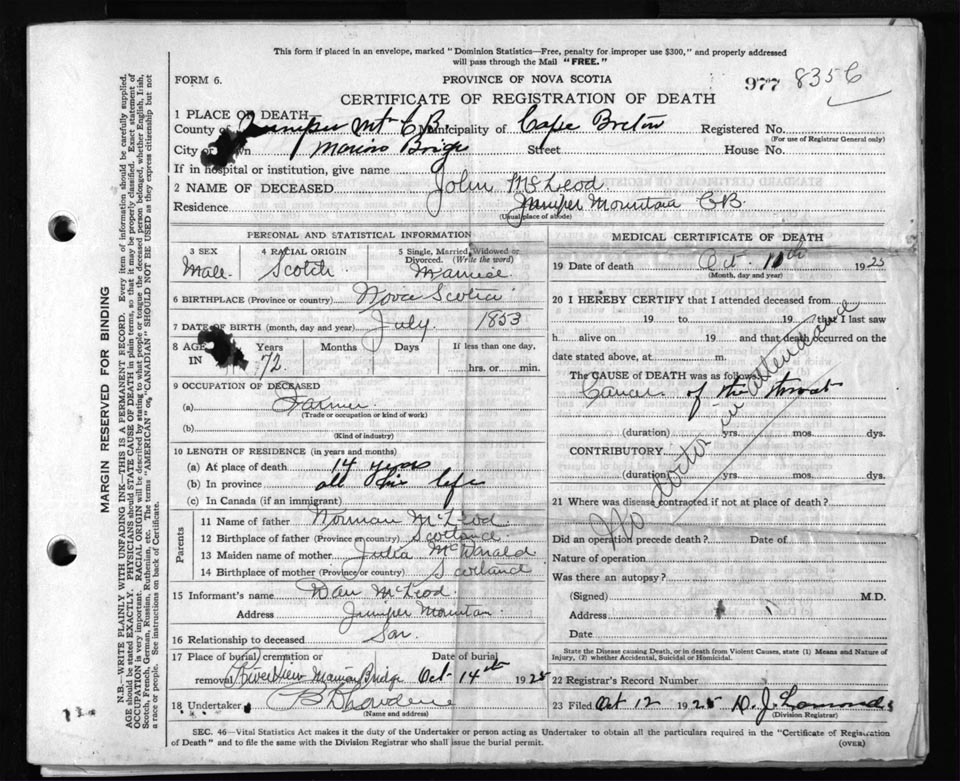 This form if placed in an envelope, marked "Dominion Statistics—Free, penalty for improper use $300," and properly addressed
will pass through the Mail "FREE."
FORM 6.
PROVINCE OF NOVA SCOTIA
977 8356
CERTIFICATE OF REGISTRATION OF DEATH
1 PLACE OF DEATH
County of Juniper Mt C.B. Municipality of Cape Breton Registered No.
(For use of Registrar General only)
City or Town Marion Bridge Street House No.
If in hospital or institution, give name
2 NAME OF DECEASED John McLeod
Residence Juniper Mountain CB.
(Usual place of abode)
PERSONAL AND STATISTICAL INFORMATION
3 SEX 4 RACIAL ORIGIN 5 Single, Married, Widowed or
Divorced. (Write the word)
Male Scotch Married
6 BIRTHPLACE (Province or country) Nova Scotia
7 DATE OF BIRTH (month, day and year) July 1853
8 AGE Years Months Days If less than one day,
IN 72 hrs. or min.
9 OCCUPATION OF DECEASED
(a) Farmer
(Trade or occupation or kind of work)
(b)
(Kind of industry)
10 LENGTH OF RESIDENCE (in years and months)
(a) At place of death 14 years
(b) In province all his life
(c) In Canada (if an immigrant)
Parents
11 Name of father Norman McLeod
12 Birthplace of father (Province or country) Scotland
13 Maiden name of mother Julia McDonald
14 Birthplace of mother (Province or country) Scotland
15 Informant's name Dan McLeod
Address Juniper Mountain
16 Relationship to deceased Son
17 Place of burial, cremation or Date of burial
removal Riverview Marion Bridge Oct 14th 1925
18 Undertaker
(Name and address)
MEDICAL CERTIFICATE OF DEATH
19 Date of death Oct. 1925
(Month, day and year)
20 I HEREBY CERTIFY that I attended deceased from
19 to 19 that I last saw
h alive on 19 and that death occurred on
date stated above, at m.
The CAUSE OF DEATH was as follows
Cancer of the throat
(duration) yrs. mos. dys.
CONTRIBUTORY
(duration) yrs. mos. dys.
No doctor in attendance
21 Where was disease contracted if not at place of death?
Did an operation precede death? Date of
Nature of operation
Was there an autopsy?
(Signed) M.D.
Address
Date
State the Disease causing Death, or in death from Violent Causes, state (1) Means and Nature of
Injury, (2) whether Accidental, Suicidal or Homicidal.
22 Registrar's Record Number
23 Filed Oct 12 1925 D. J.
(Division Registrar)
SEC. 46—Vital Statistics Act makes it the duty of the Undertaker or person acting as Undertaker to obtain all the particulars required in the "Certificate of Registration
of Death" and to file the same with the Division Registrar who shall issue the burial permit.
(OVER)
MARGIN RESERVED FOR BINDING
N.B.—WRITE PLAINLY WITH UNFADING INK—THIS IS A PERMANENT RECORD. Every item of information should be carefully supplied.
AGE should be stated EXACTLY. PHYSICIANS should STATE CAUSE OF DEATH in plain terms, so that it may be properly classified. Exact statement of
OCCUPATION is very important. RACIAL ORIGIN will be described by stating to what people or tongue the deceased person belonged, whether English, Irish,
Scotch, French, German, Russian, Ruthenian, etc. The terms "AMERICAN" or "CANADIAN" SHOULD NOT BE USED as they express citizenship but not
a race or people. See instructions on back of Certificate.